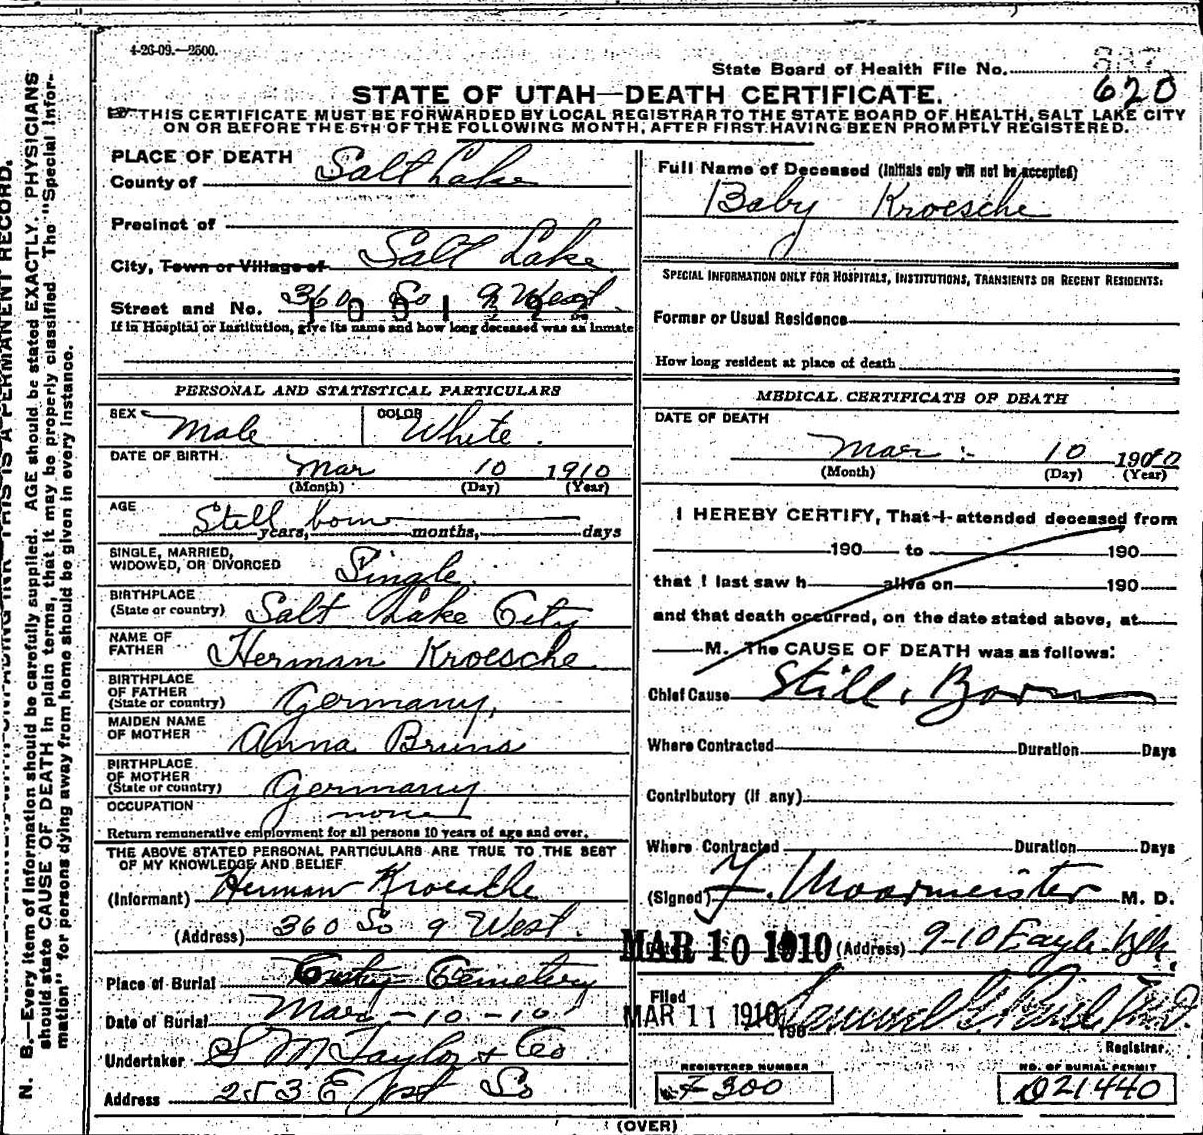 4-26-09.—2500.
State Board of Health File No.
620
STATE OF UTAH—DEATH CERTIFICATE.
THIS CERTIFICATE MUST BE FORWARDED BY LOCAL REGISTRAR TO THE STATE BOARD OF HEALTH, SALT LAKE CITY
ON OR BEFORE THE 5TH OF THE FOLLOWING MONTH, AFTER FIRST HAVING BEEN PROMPTLY REGISTERED.
PLACE OF DEATH
County of Salt Lake
Precinct of
City, Town or Village of Salt Lake
Street and No. 360 So 9 West
If in Hospital or Institution, give its name and how long deceased was an inmate
PERSONAL AND STATISTICAL PARTICULARS
SEX Male COLOR White.
DATE OF BIRTH Mar 10 1910
(Month) (Day) (Year)
AGE
Still born years, months, days
SINGLE, MARRIED,
WIDOWED, OR DIVORCED Single
BIRTHPLACE
(State or country) Salt Lake City
NAME OF
FATHER Herman Kroesche
BIRTHPLACE
OF FATHER
(State or country) Germany
MAIDEN NAME
OF MOTHER Anna Bruns
BIRTHPLACE
OF MOTHER
(State or country) Germany
OCCUPATION none
Return remunerative employment for all persons 10 years of age and over.
THE ABOVE STATED PERSONAL PARTICULARS ARE TRUE TO THE BEST
OF MY KNOWLEDGE AND BELIEF
(Informant) Herman Kroesche
(Address) 360 So 9 West.
Place of Burial City Cemetery
Date of Burial Mar - 10 - 10
Undertaker S M Taylor & Co
Address 253 E 1st So
Full Name of Deceased (Initials only will not be accepted)
Baby Kroesche
SPECIAL INFORMATION ONLY FOR HOSPITALS, INSTITUTIONS, TRANSIENTS OR RECENT RESIDENTS:
Former or Usual Residence
How long resident at place of death
MEDICAL CERTIFICATE OF DEATH
DATE OF DEATH
Mar 10 1910
(Month) (Day) (Year)
I HEREBY CERTIFY, That I attended deceased from
190 to 190
that I last saw h alive on 190
and that death occurred, on the date stated above, at
M. The CAUSE OF DEATH was as follows:
Chief Cause Still Born
Where Contracted Duration Days
Contributory (if any)
Where Contracted Duration Days
(Signed) F. Moormeister M. D.
MAR 10 1910 (Address) 9-10 Eagle Blk.
Filed
MAR 11 1910
Registrar.
REGISTERED NUMBER
300
NO. OF BURIAL PERMIT
21440
(OVER)
N. B.—Every item of information should be carefully supplied. AGE should be stated EXACTLY. PHYSICIANS
should state CAUSE OF DEATH in plain terms, that it may be properly classified. The "Special Infor-
mation" for persons dying away from home should be given in every instance.